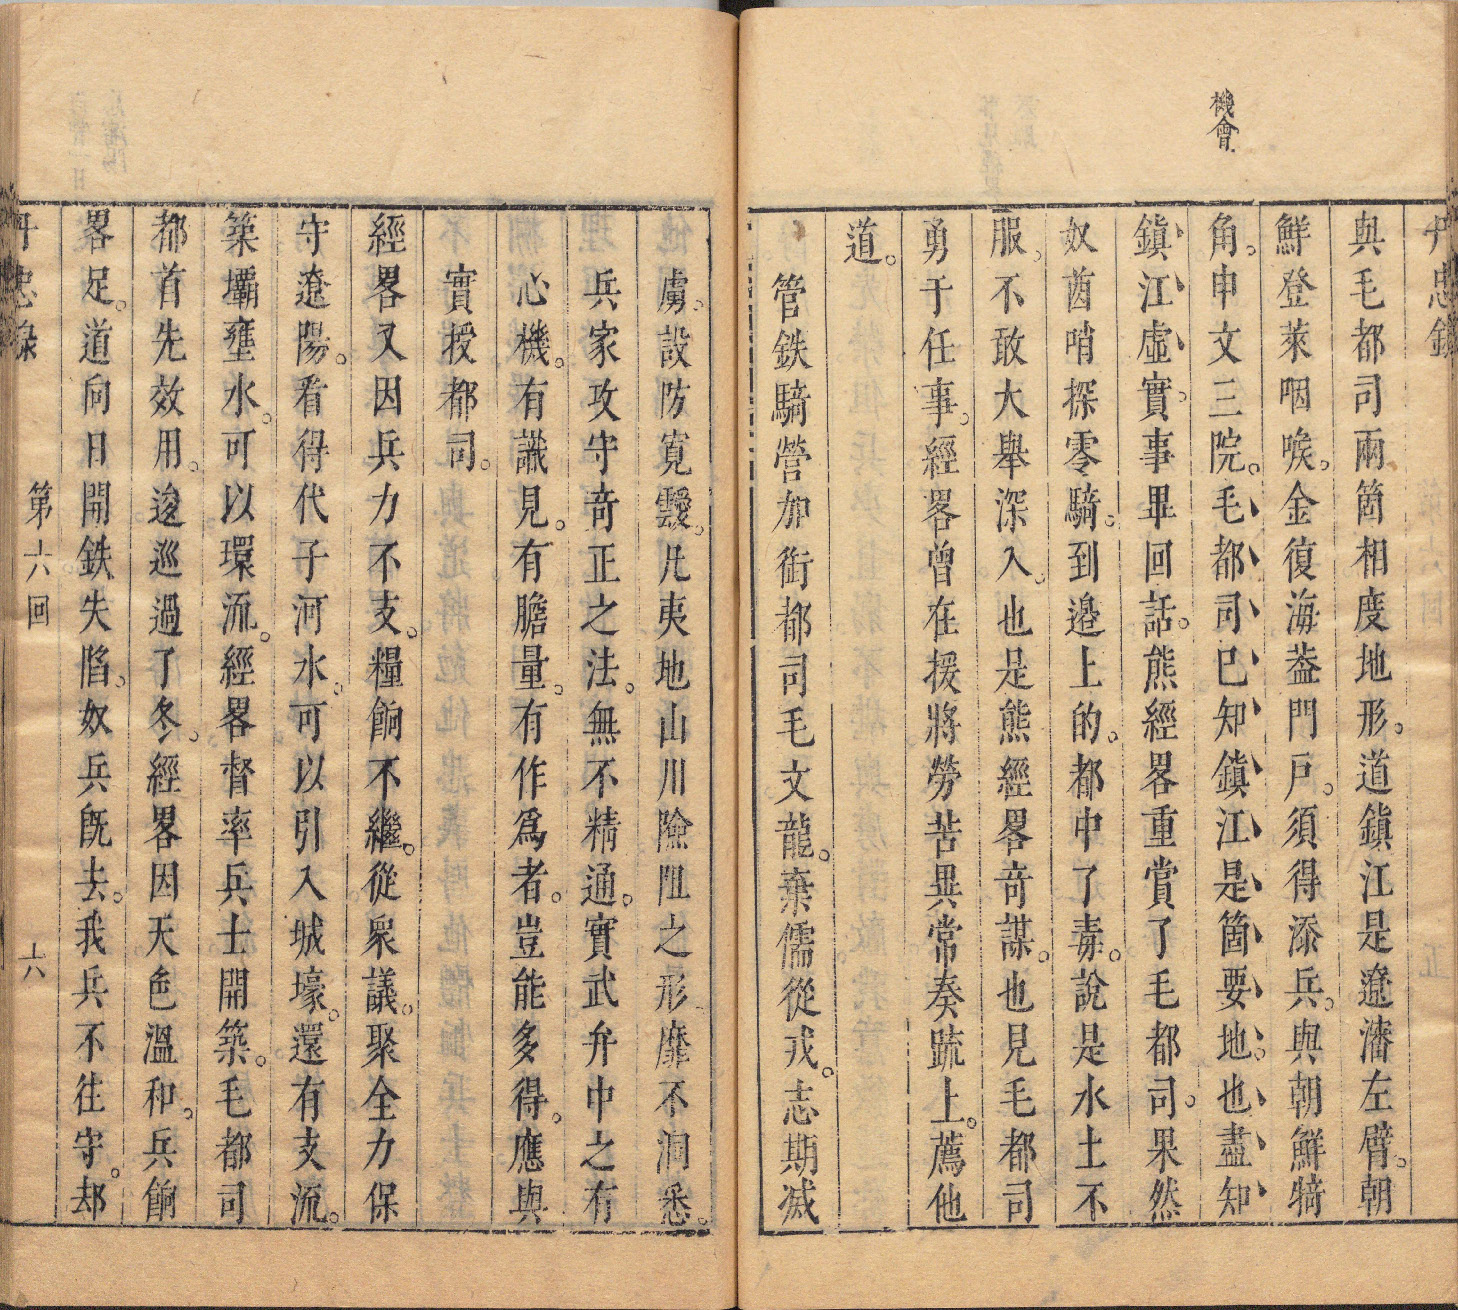 機會
丹忠錄
與毛都司兩箇相度地形。道鎮江是遼瀋左臂。朝
鮮登萊咽喉。金復海葢門戸。須得添兵。與朝鮮犄
角。申文三院。毛都司已知鎮江是箇要地。也盡知
鎮江虛實。事畢回話。熊經畧重賞了毛都司。果然
奴酋哨探零騎。到邉上的。都中了毒。說是水土不
服。不敢大舉深入。也是熊經畧竒謀。也見毛都司
勇于任事。經畧曾在援將勞苦異常奏䟽上。薦他
道。
管鉄騎營加銜都司毛文龍。棄儒從戎。志期滅
虜。設防寬靉。凢夷地山川險阻之形靡不洞悉。
兵家攻守竒正之法。無不精通。實武弁中之有
心機。有識見。有膽量。有作爲者。豈能多得。應與
實授都司。
經畧又因兵力不支。糧餉不繼。從衆議。聚全力保
守遼陽。看得代子河水。可以引入城壕。還有支流。
築壩壅水。可以環流。經畧督率兵士開築。毛都司
都首先效用。逡巡過了冬。經畧因天色溫和。兵餉
畧足。道向日開鉄失陷。奴兵旣去。我兵不往守。却
丹忠錄
第六回
六